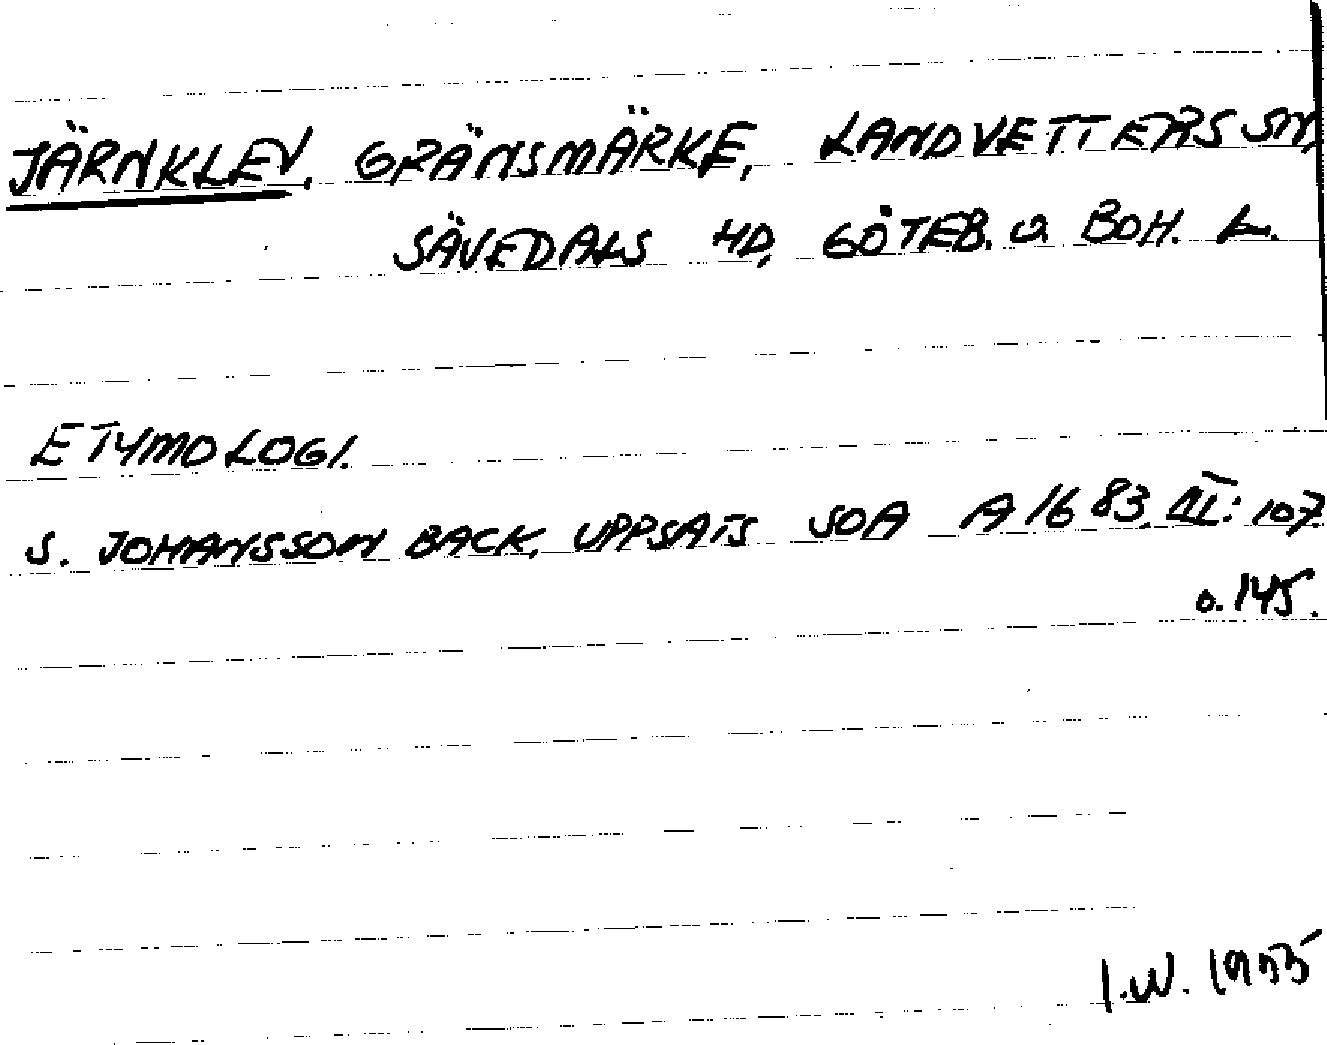 JÄRNKLEV, GRÄNSMÄRKE, LANDVETTERS SN,
SÄVEDALS HD, GÖTEB. O. BOH. L.
ETYMOLOGI.
S. JOHANSSON BACK, UPPSATS SOA A 16 83. III: 107
o. 145.
I.W. 1955